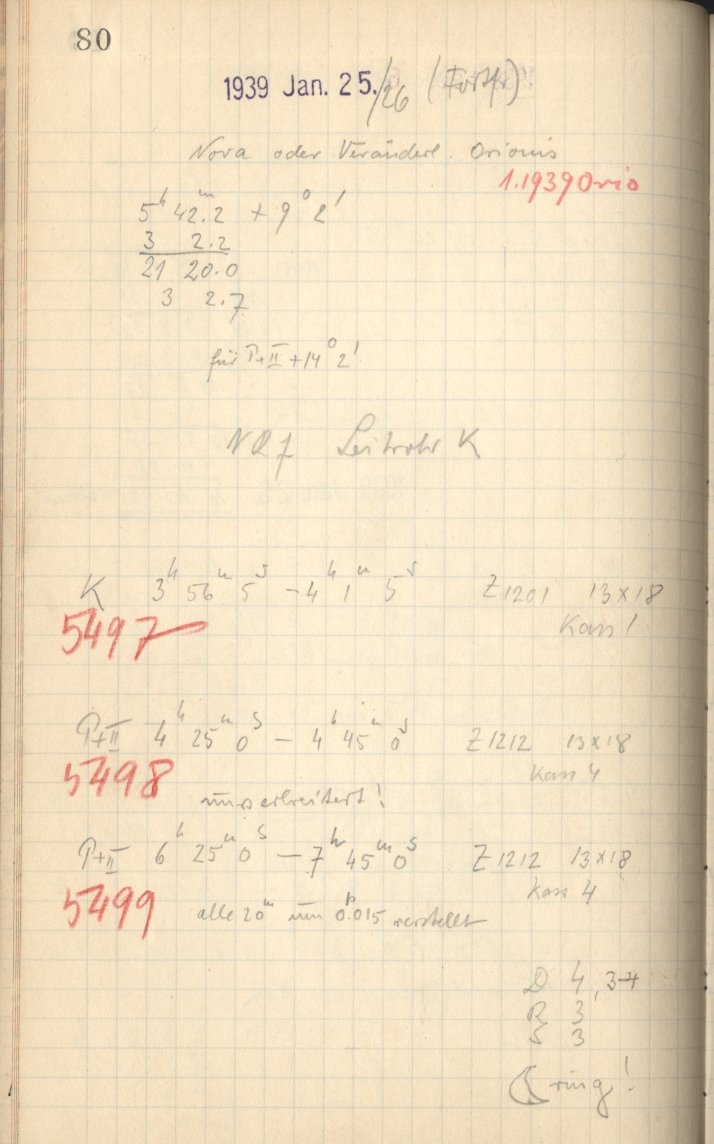 80
1939 Jan. 25./26 (Forts.)
Nova oder Veränderl. Orionis
1.1939 Orio
5ʰ 42ᵐ.2 + 9° 2'
3 2.2
21 20.0
3 2.7
für P+II +14° 2'
Leitrohr K
K 3ʰ 56ᵐ 5ˢ – 4ʰ 1ᵐ 5ˢ Z 1201 13×18
5497 Kass 1
P+II 4ʰ 25ᵐ 0ˢ – 4ʰ 45ᵐ 0ˢ Z 1212 13×18
5498 Kass 4
unverbreitert!
P+II 6ʰ 25ᵐ 0ˢ – 7ʰ 45ᵐ 0ˢ Z 1212 13×18
Kass 4
5499 alle 20ᵐ um 0ᵖ.015 verstellt
D 4, 3-4
R 3
S 3
ring!